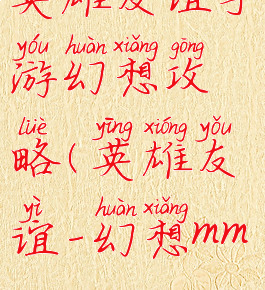 英雄友谊手
yóu huàn xiǎng gōng
游幻想攻
lüè yīng xióng yǒu
略(英雄友
yì huàn xiǎng
谊-幻想mm